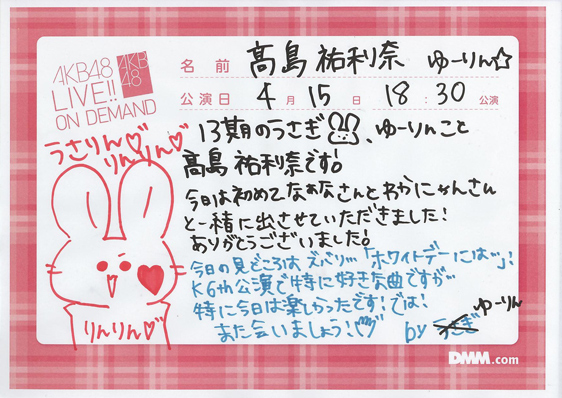 AKB48
LIVE!!
ON DEMAND
AKB
48
名前 髙島 祐利奈 ゆーりん☆
公演日 4月 15日 18:30 公演
うさりん♡
りんりん♡
13期のうさぎ、ゆーりんこと
髙島 祐利奈です!
今日は初めてなぁなさんとわかにゃんさん
と一緒に出させていただきました!
ありがとうございました!
今日の見どころは、ズバリ…「ホワイトデーには…」!
K6th公演で特に好きな曲ですが…
特に今日は楽しかったです!では!
また会いましょう!
by うさぎ ゆーりん
りんりん♡
DMM.com